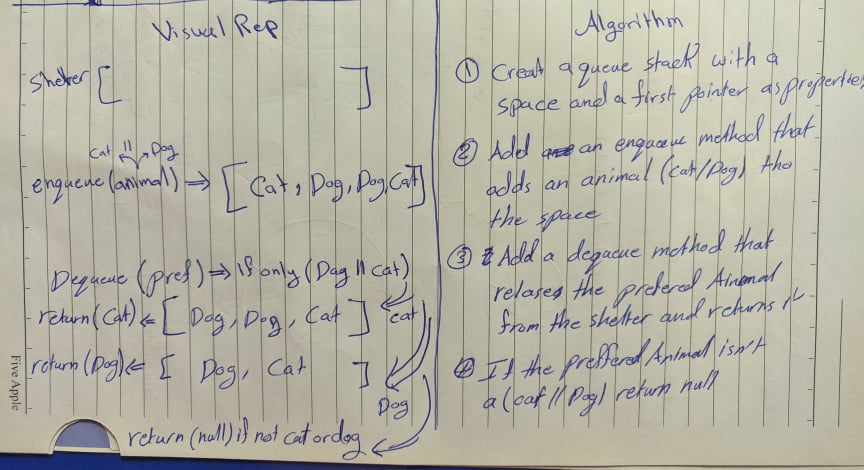 Visual Rep
Shelter [ ]
Cat || Dog
enqueue (animal) ⇒ [ Cat, Dog, Dog, Cat ]
Dequeue (pref) ⇒ if only (Dog || Cat)
return (Cat) ⇐ [ Dog, Dog, Cat ] cat
return (Dog) ⇐ [ Dog, Cat ]
Dog
return (null) if not cat or dog
Five Apple
Algorithm
① Creat a queue stack with a
space and a first pointer as properties
② Add an enqueue method that
adds an animal (cat/Dog) tho
the space
③ Add a dequeue method that
relases the prefered Ainemal
from the shelter and returns it
④ If the preffered Animal isn't
a (cat || Dog) return null